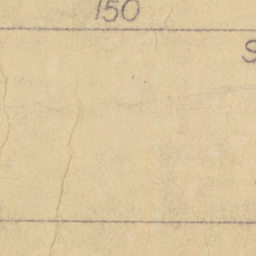 150
S